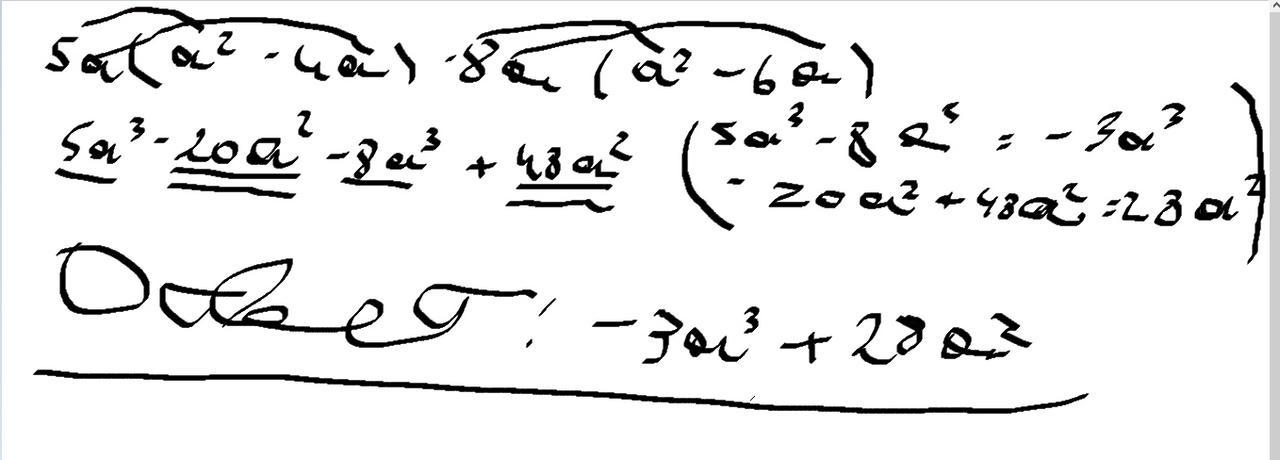 5a(a² - 4a) - 8a (a² - 6a)
5a³ - 20a² - 8a³ + 48a²
(5a³ - 8a³ = - 3a³
- 20a² + 48a² = 28a²)
Ответ: - 3a³ + 28a²